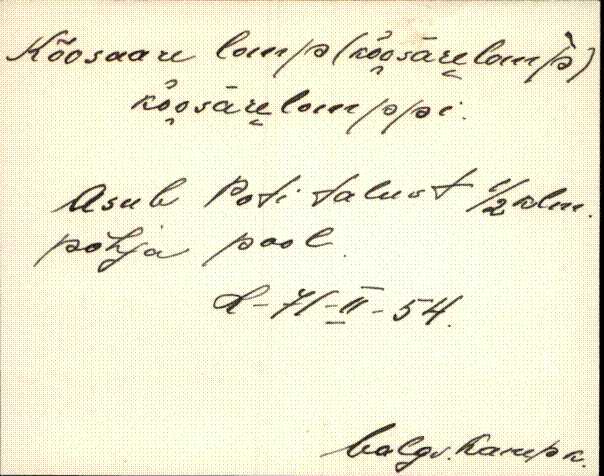 Kõosaare lomp (kõ̭osāre̮lomp̀)
kõ̭osāre̮lomppi.
Asub Poti talust 1/2 klm.
põhja pool.
L-71-II-54.
Valgv. Karupk.